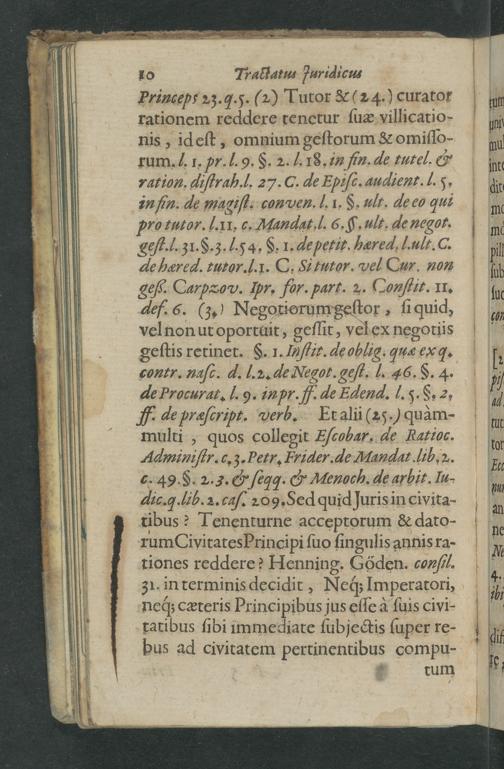 10 Tractatus Juridicus
Princeps 23. q. 5. (2) Tutor & (24.) curator
rationem reddere tenetur suæ villicatio-
nis, id est, omnium gestorum & omisso-
rum. l. 1. pr. l. 9. §. 2. l. 18. in fin. de tutel. &
ration. distrah. l. 27. C. de Episc. audient. l. 5.
in fin. de magist. conven. l. 1. §. ult. de eo qui
pro tutor. l. 11. c. Mandat. l. 6. §. ult. de negot.
gest. l. 31. §. 3. l. 54, §. 1. de petit. hæred, l. ult. C.
de hæred. tutor. l. 1. C. Si tutor. vel Cur. non
geß. Carpzov. Ipr. for. part. 2. Constit. 11.
def. 6. (3.) Negotiorum gestor, si quid,
vel non ut oportuit, gessit, vel ex negotiis
gestis retinet. §. 1. Instit. de oblig. quæ ex q.
contr. nasc. d. l. 2. de Negot. gest. l. 46. §. 4.
de Procurat. l. 9. in pr. ff. de Edend. l. 5. §. 2,
ff. de præscript. verb. Et alii (25.) quàm-
multi, quos collegit Escobar. de Ratioc.
Administr. c. 3. Petr. Frider. de Mandat. lib. 2.
c. 49. §. 2. 3. & seqq. & Menoch. de arbit. Iu-
dic. q. lib. 2. cas. 209. Sed quid Juris in civita-
tibus? Tenenturne acceptorum & dato-
rum Civitates Principi suo singulis annis ra-
tiones reddere? Henning. Göden. consil.
31. in terminis decidit, Neq; Imperatori,
neq; cæteris Principibus jus esse à suis civi-
tatibus sibi immediate subjectis super re-
bus ad civitatem pertinentibus compu-
tum